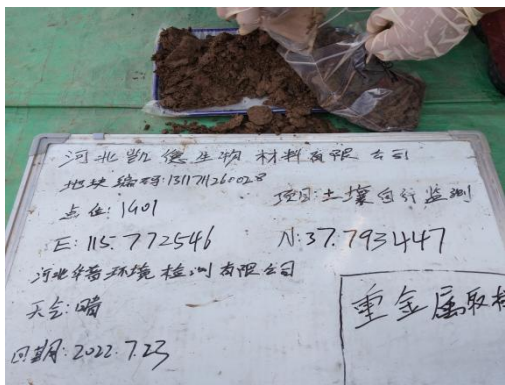 河北凯德生物材料有限公司
地块编码:1311711260028
项目:土壤自行监测
点位:1G01
E:115.772546
N:37.793447
河北华普环境检测有限公司
天气:晴
重金属取样
日期:2022.7.23